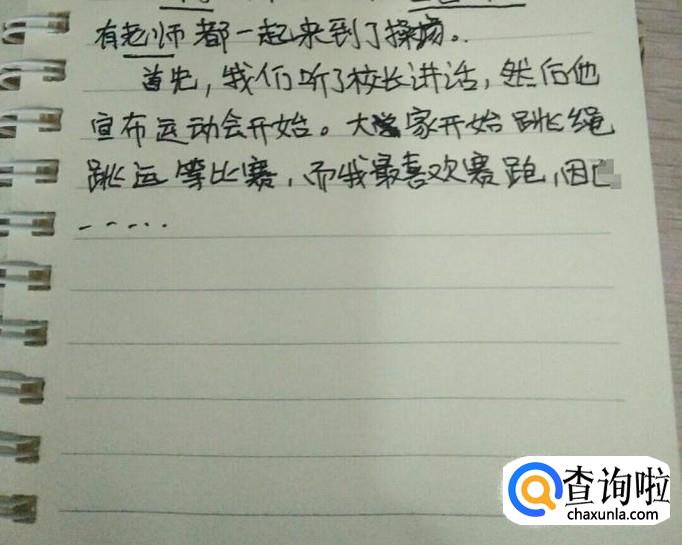 有老师都一起来到了操场。
首先,我们听了校长讲话,然后他
宣布运动会开始。大家开始跳绳
跳远等比赛,而我最喜欢赛跑,因
......
查询啦
chaxunla.com